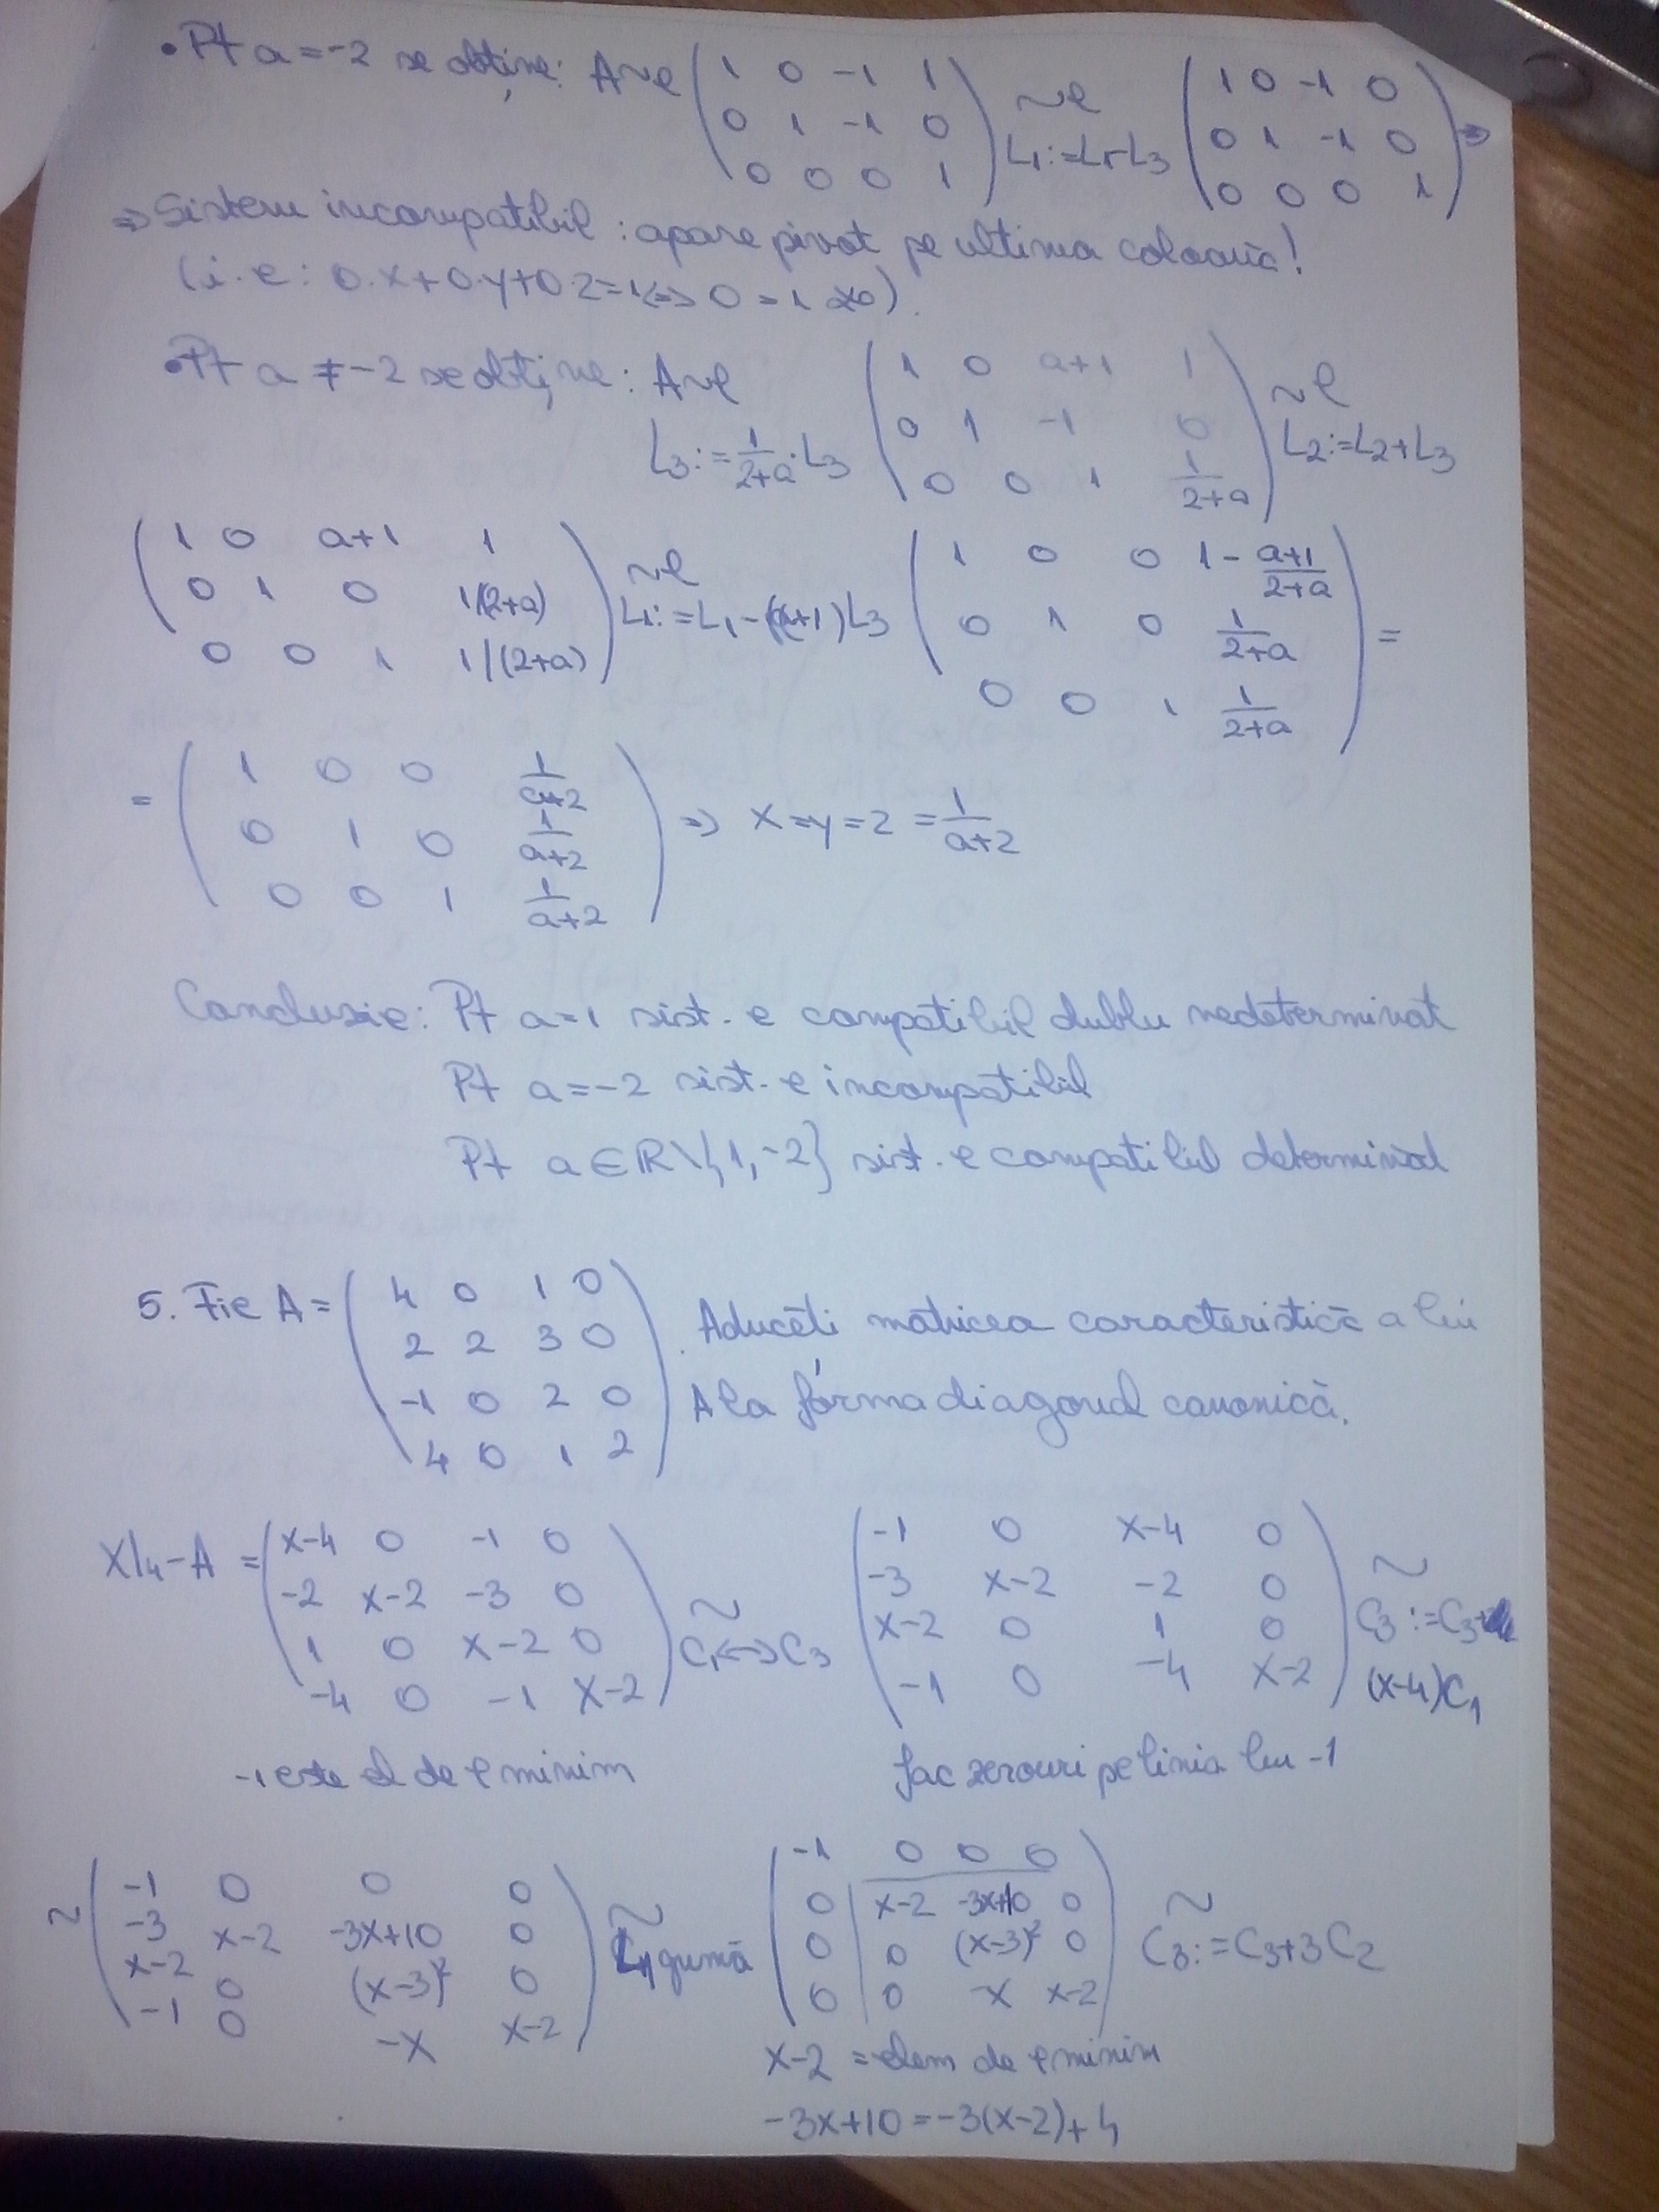 • Pt a = -2 se obține: A ~l ( 1 0 -1 1 ; 0 1 -1 0 ; 0 0 0 1 ) ~l L1:=L1-L3 ( 1 0 -1 0 ; 0 1 -1 0 ; 0 0 0 1 ) ⇒
⇒ Sistem incompatibil : apare pivot pe ultima coloană!
(i.e: 0·x+0·y+0·z=1 <=> 0=1 ).
• Pt a ≠ -2 se obține: A ~l L3:=1/(2+a)·L3 ( 1 0 a+1 1 ; 0 1 -1 0 ; 0 0 1 1/(2+a) ) ~l L2:=L2+L3
( 1 0 a+1 1 ; 0 1 0 1/(2+a) ; 0 0 1 1/(2+a) ) ~l L1:=L1-(a+1)L3 ( 1 0 0 1-(a+1)/(2+a) ; 0 1 0 1/(2+a) ; 0 0 1 1/(2+a) ) =
= ( 1 0 0 1/(a+2) ; 0 1 0 1/(a+2) ; 0 0 1 1/(a+2) ) ⇒ x=y=z=1/(a+2)
Concluzie: Pt a=1 sist. e compatibil dublu nedeterminat
Pt a=-2 sist. e incompatibil
Pt a∈R\{1,-2} sist. e compatibil determinat
5. Fie A = ( 4 0 1 0 ; 2 2 3 0 ; -1 0 2 0 ; 4 0 1 2 ). Aduceți matricea caracteristică a lui
A la forma diagonal canonică.
XI4-A = ( x-4 0 -1 0 ; -2 x-2 -3 0 ; 1 0 x-2 0 ; -4 0 -1 x-2 ) ~ C1<->C3 ( -1 0 x-4 0 ; -3 x-2 -2 0 ; x-2 0 1 0 ; -1 0 -4 x-2 ) ~ C3:=C3+ (x-4)C1
-1 este el de l minim
fac zerouri pe linia lui -1
~ ( -1 0 0 0 ; -3 x-2 -3x+10 0 ; x-2 0 (x-3)² 0 ; -1 0 -x x-2 ) ~ gumă ( -1 0 0 0 ; 0 x-2 -3x+10 0 ; 0 0 (x-3)² 0 ; 0 0 -x x-2 ) ~ C3:=C3+3C2
x-2 = elem de l minim
-3x+10=-3(x-2)+4